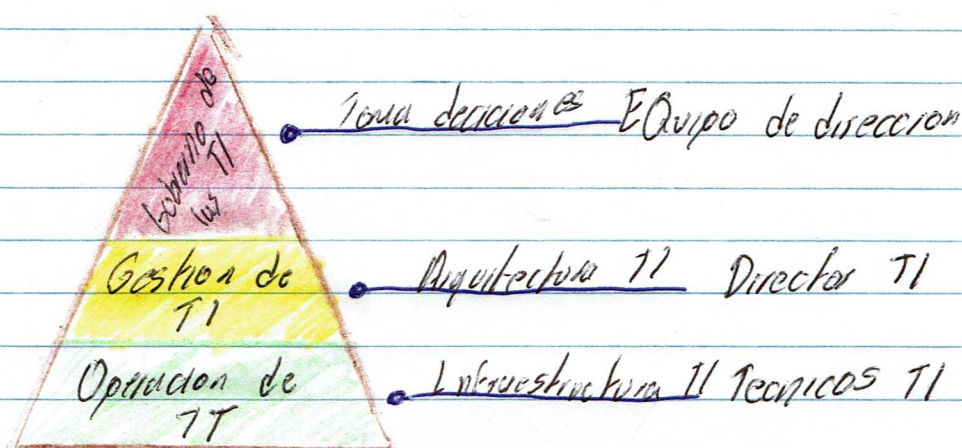 Gobierno de
las TI
Toma deciciones Equipo de direccion
Gestion de
TI
Arquitectura TI Director TI
Operacion de
TI
Infraestructura TI Tecnicos TI